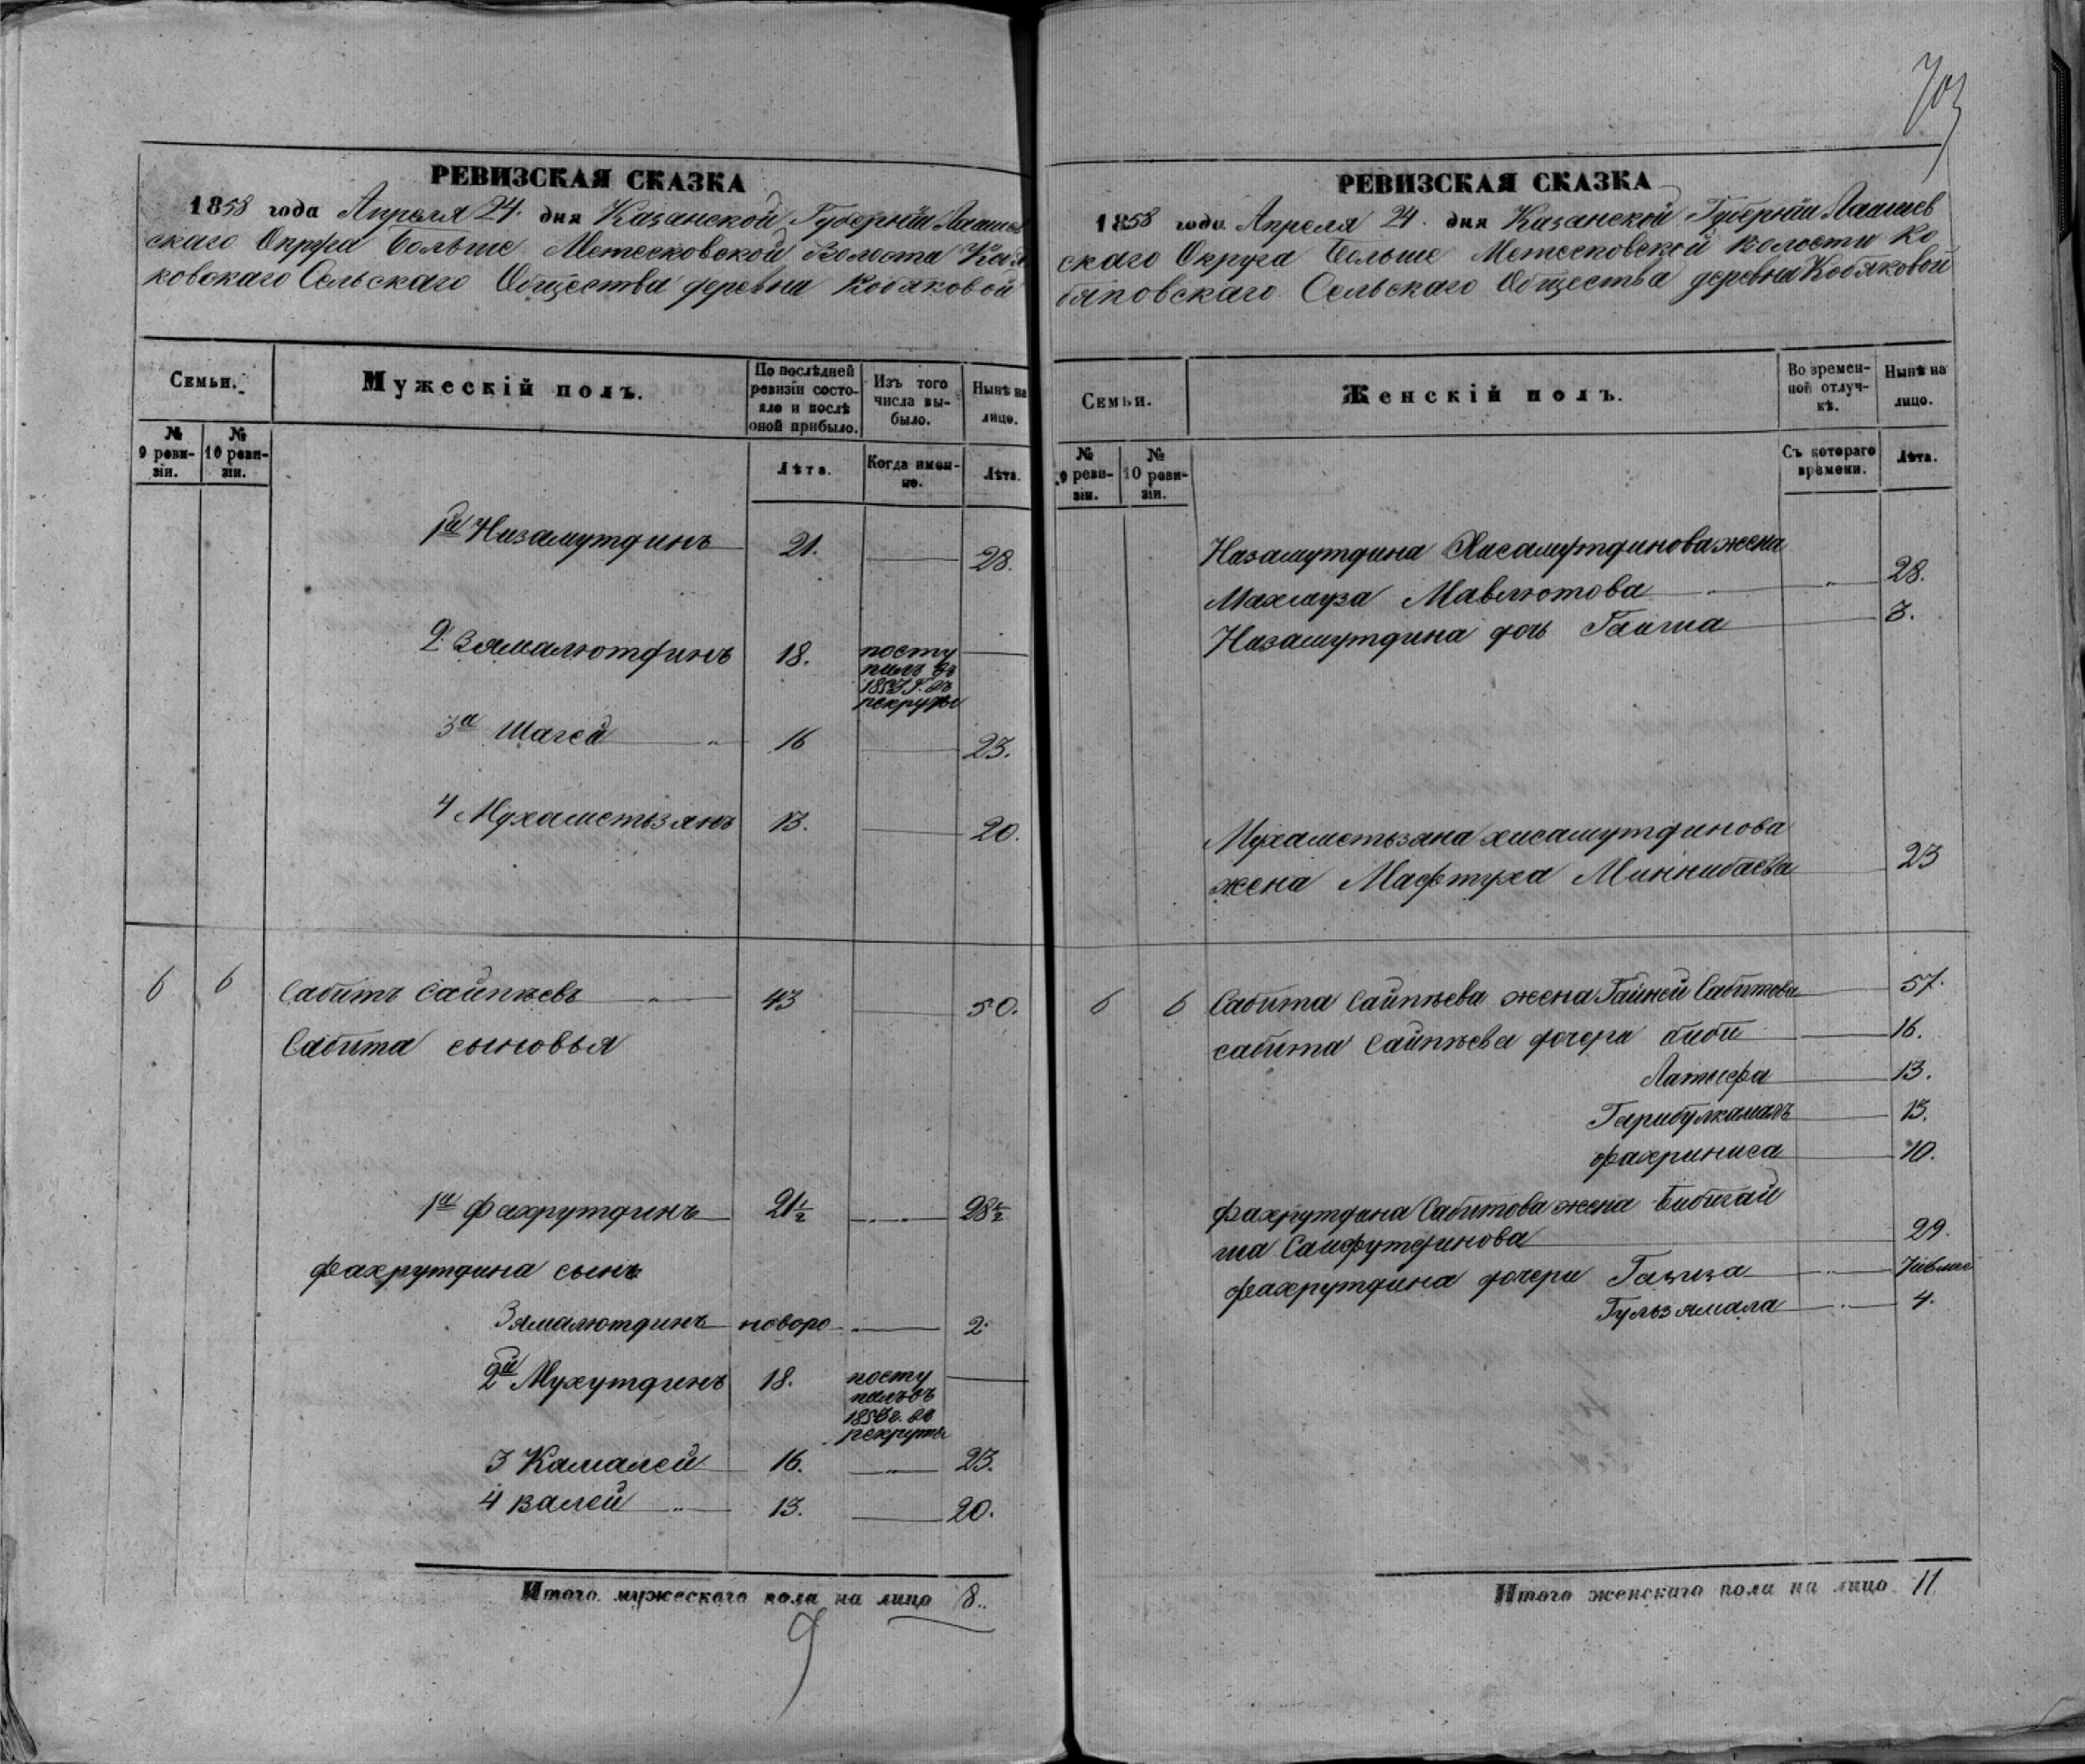 703
РЕВИЗСКАЯ СКАЗКА
1858 года Апреля 24. дня Казанской Губерніи Лаишев
скаго Округа Больше Метесковской Волости Кобя
ковскаго Сельскаго Общества деревни Кобяковой
Семьи.
Мужескій полъ.
По послѣдней
ревизіи состо-
яло и послѣ
оной прибыло.
Изъ того
числа вы-
было.
Нынѣ на
лицо.
№
9 реви-
зіи.
№
10 реви-
зіи.
Лѣта.
Когда имен-
но.
Лѣта.
1й Низамутдинъ 21. 28.
2. Зямалютдинъ 18. посту
пилъ въ
рекруты
3й Шагей 16 23.
4 Мухаметьзянъ 13. 20.
6 6 Сабитъ Сайпѣевъ 43 50.
Сабита сыновья
1й Фахрутдинъ 21½ 28½
Фахрутдина сынъ
Зямалютдинъ новоро 2.
2й Мухутдинъ 18. посту
пилъ въ
рекруты
3 Камалей 16. 23.
4 Валей 13. 20.
Итого мужескаго пола на лицо 8.
9
РЕВИЗСКАЯ СКАЗКА
1858 года Апреля 24. дня Казанской Губерніи Лаишев
скаго Округа Больше Метесковской волости Ко
бяковскаго Сельскаго Общества деревни Кобяковой
Семьи.
Женскій полъ.
Во времен-
ной отлуч-
кѣ.
Нынѣ на
лицо.
№
9 реви-
зіи.
№
10 реви-
зіи.
Съ котораго
времени.
Лѣта.
Назамутдина Хисамутдинова жена
Махмуза Мавлютова 28.
Назамутдина дочь Гайша 3.
Мухаметьзяна хисамутдинова
жена Мафтуха Миннибаева 23
6 6 Сабита Сайпѣева жена Гайней Сабитова 57.
сабита Сайпѣева дочери биби 16.
Латифа 13.
Гарибулкамалъ 13.
Фахриниса 10.
Фахрутдина Сабитова жена Бибигай
ша Саифутдинова 29.
Фахрутдина дочери Газиза
Гульзямала 4.
Итого женскаго пола на лицо 11